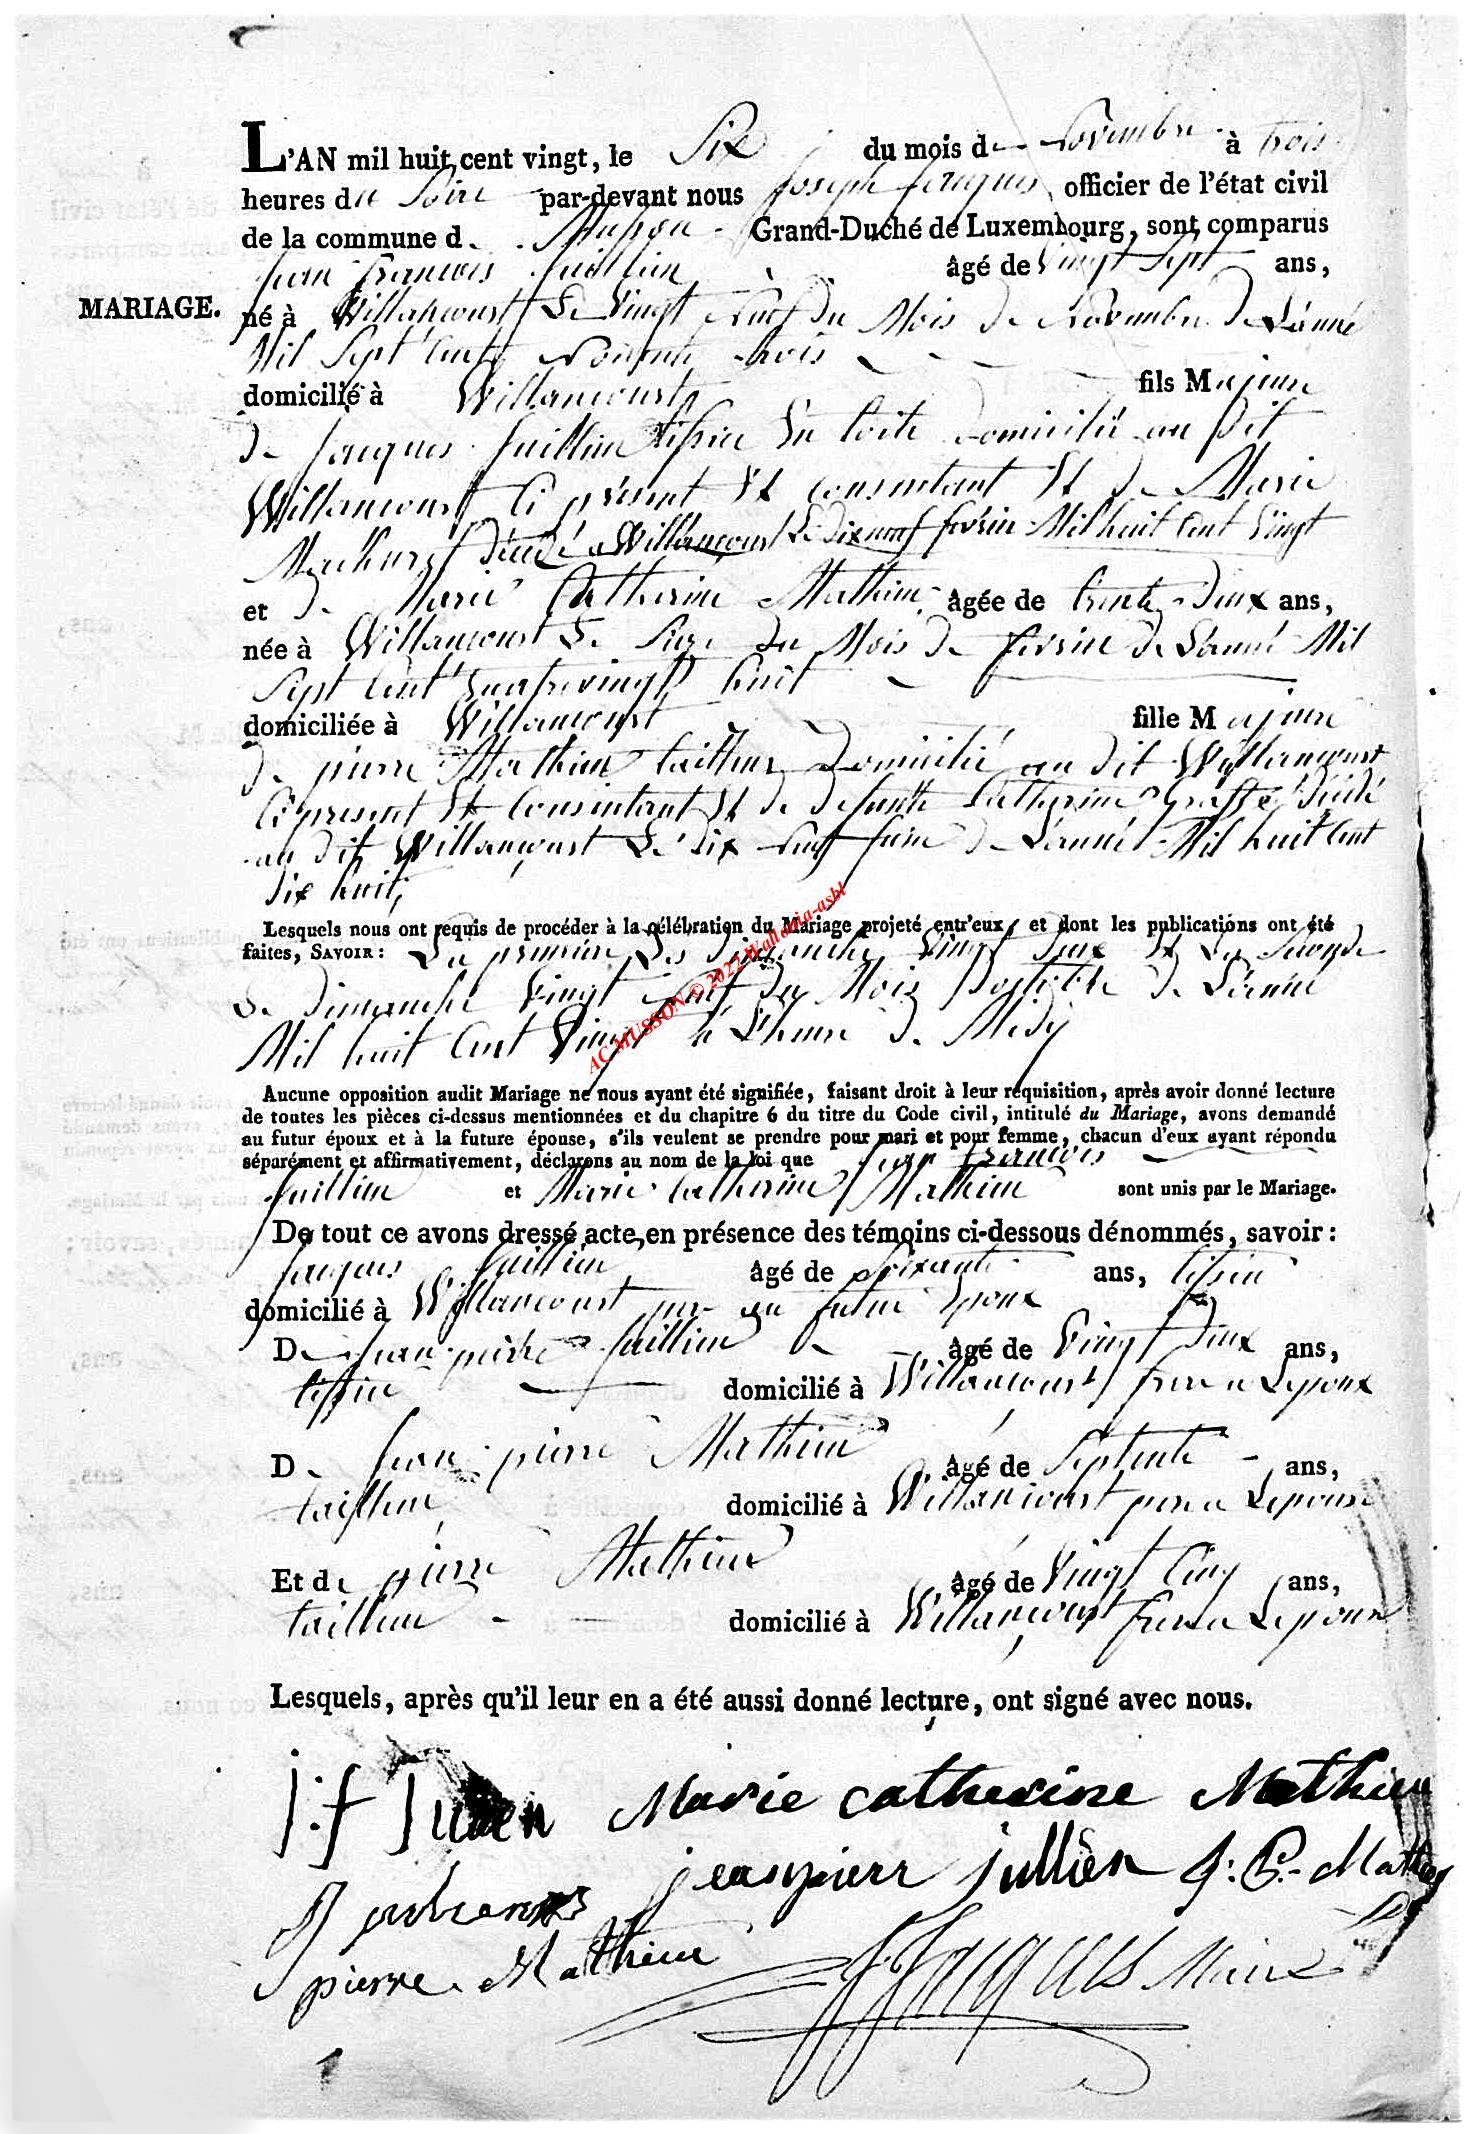 L'AN mil huit cent vingt, le Six du mois de Novembre à trois
heures du Soire par-devant nous Joseph Jacques officier de l'état civil
de la commune de Musson Grand-Duché de Luxembourg, sont comparus
Jean francois Juillien âgé de Vingt Sept ans,
MARIAGE.
né à Willancourt Le Vingt neuf du Mois De Novembre De L'année
Mil Sept Cent Nonente trois
domicilié à Willancourt fils Majeure
De Jacques Juillien tissie domicilié au Dit
Willancourt Ci présent Et consentant Et De Marie
décédé a Willancourt Le Dix neuf fevrie Mil huit Cent Vingt
et De Marie Catherine Mathieu âgée de trente Deux ans,
née à Willancourt Le Sieze du Mois De fevrie De L'année Mil
Sept Cent quatrevingt huit
domiciliée à Willancourt fille Majeure
De pierre Mathieu tailleur Domicilié au Dit Willancourt
Ci present Et Consentant Et De Defunte Catherine décédé
au dit Willancourt Le dix neuf De L'année Mil huit Cent
Dix huit,
Lesquels nous ont requis de procéder à la célébration du Mariage projeté entr'eux, et dont les publications ont été
faites, SAVOIR : La premiere Les Dimanche Vingt Deux Et La Seconde
Le Dimanche Vingt neuf Du Mois D'octobre De L'année
Mil huit Cent Vingt à L'heure De Midy
AC MUSSON © 2022 Wallonia-asbl
Aucune opposition audit Mariage ne nous ayant été signifiée, faisant droit à leur réquisition, après avoir donné lecture
de toutes les pièces ci-dessus mentionnées et du chapitre 6 du titre du Code civil, intitulé du Mariage, avons demandé
au futur époux et à la future épouse, s'ils veulent se prendre pour mari et pour femme, chacun d'eux ayant répondu
séparément et affirmativement, déclarons au nom de la loi que Jean francois
Juillien et Marie Catherine Mathieu sont unis par le Mariage.
De tout ce avons dressé acte, en présence des témoins ci-dessous dénommés, savoir :
Jacques Juillien âgé de Soixante ans, tissie
domicilié à Willancourt au futur Epoux
De Jean pierre Juillien âgé de Vingt Deux ans,
tissie domicilié à Willancourt frere a Lepoux
De Jean pierre Mathieu âgé de Septente ans,
tailleur domicilié à Willancourt pere a Lepouse
Et de pierre Mathieu âgé de Vingt Cinq ans,
tailleur domicilié à Willancourt frere a Lepouse
Lesquels, après qu'il leur en a été aussi donné lecture, ont signé avec nous.
j.f Marie catherine Mathieu
jeanpierr jullien J: P. Mathieu
pierre Mathieu J Jacques Maire